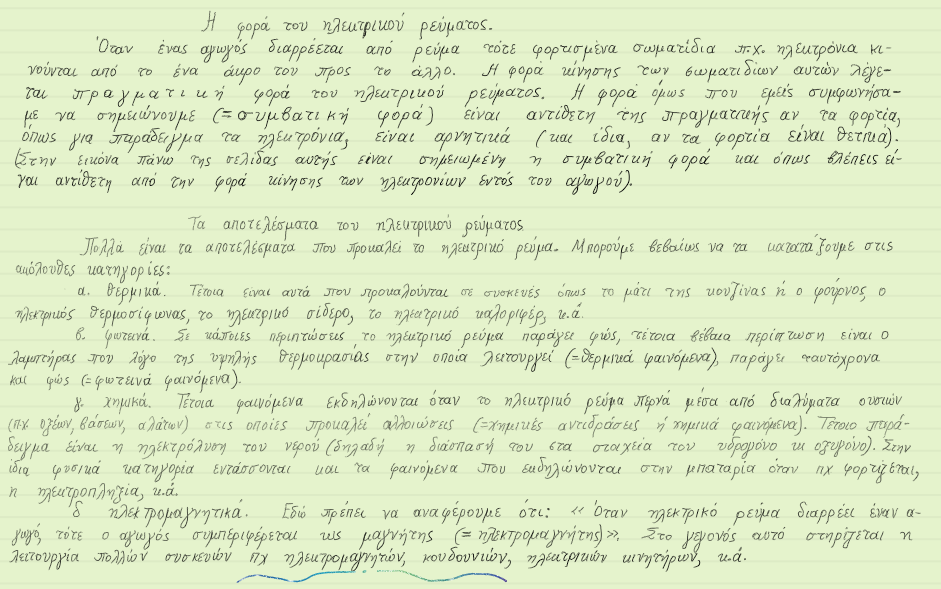 Η φορά του ηλεκτρικού ρεύματος.
Όταν ένας αγωγός διαρρέεται από ρεύμα τότε φορτισμένα σωματίδια π.χ. ηλεκτρόνια κι-
νούνται από το ένα άκρο του προς το άλλο. Η φορά κίνησης των σωματιδίων αυτών λέγε-
ται πραγματική φορά του ηλεκτρικού ρεύματος. Η φορά όμως που εμείς συμφωνήσα-
με να σημειώνουμε (=συμβατική φορά) είναι αντίθετη της πραγματικής αν τα φορτία,
όπως για παράδειγμα τα ηλεκτρόνια, είναι αρνητικά (και ίδια, αν τα φορτία είναι θετικά).
(Στην εικόνα πάνω της σελίδας αυτής είναι σημειωμένη η συμβατική φορά και όπως βλέπεις εί-
ναι αντίθετη από την φορά κίνησης των ηλεκτρονίων εντός του αγωγού).
Τα αποτελέσματα του ηλεκτρικού ρεύματος
Πολλά είναι τα αποτελέσματα που προκαλεί το ηλεκτρικό ρεύμα. Μπορούμε βεβαίως να τα κατατάξουμε στις
ακόλουθες κατηγορίες:
α. θερμικά. Τέτοια είναι αυτά που προκαλούνται σε συσκευές όπως το μάτι της κουζίνας ή ο φούρνος, ο
ηλεκτρικός θερμοσίφωνας, το ηλεκτρικό σίδερο, το ηλεκτρικό καλοριφέρ, κ.ά.
β. φωτεινά. Σε κάποιες περιπτώσεις το ηλεκτρικό ρεύμα παράγει φώς, τέτοια βέβαια περίπτωση είναι ο
λαμπτήρας που λόγο της υψηλής θερμοκρασίας στην οποία λειτουργεί (=θερμικά φαινόμενα), παράγει ταυτόχρονα
και φώς (=φωτεινά φαινόμενα).
γ. χημικά. Τέτοια φαινόμενα εκδηλώνονται όταν το ηλεκτρικό ρεύμα περνά μέσα από διαλύματα ουσιών
(πχ οξέων, βάσεων, αλάτων) στις οποίες προκαλεί αλλοιώσεις (=χημικές αντιδράσεις ή χημικά φαινόμενα). Τέτοιο παρά-
δειγμα είναι η ηλεκτρόλυση του νερού (δηλαδή η διάσπασή του στα στοιχεία του υδρογόνο κι οξυγόνο). Στην
ίδια φυσικά κατηγορία εντάσσονται και τα φαινόμενα που εκδηλώνονται στην μπαταρία όταν πχ φορτίζεται,
η ηλεκτροπληξία, κ.ά.
δ ηλεκτρομαγνητικά. Εδώ πρέπει να αναφέρουμε ότι: «Όταν ηλεκτρικό ρεύμα διαρρέει έναν α-
γωγό, τότε ο αγωγός συμπεριφέρεται ως μαγνήτης (= ηλεκτρομαγνήτης)». Στο γεγονός αυτό στηρίζεται η
λειτουργία πολλών συσκευών πχ ηλεκτρομαγνητών, κουδουνιών, ηλεκτρικών κινητήρων, κ.ά.